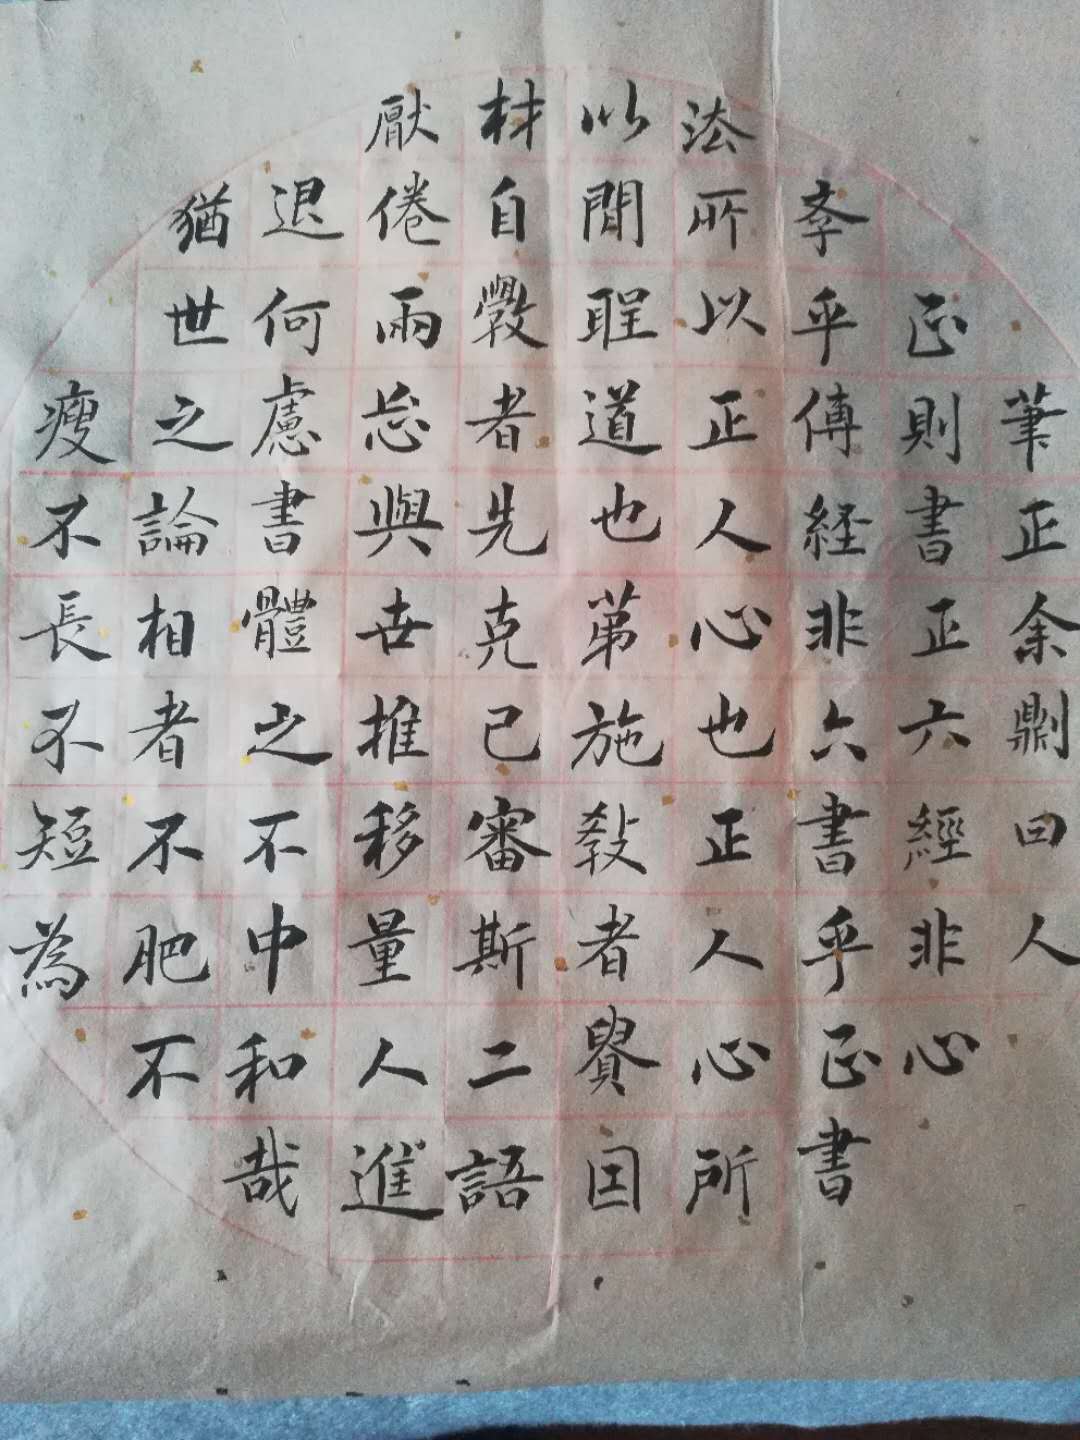 筆正余則曰人
正則書正六經非心
斈乎傳経非六書乎正書
法所以正人心也正人心所
以閒聖道也第施敎者貴因
材自斆者先克己審斯二語
厭倦兩忘與世推移量人進
退何慮書體之不中和哉
猶世之論相者不肥不
瘦不長不短為